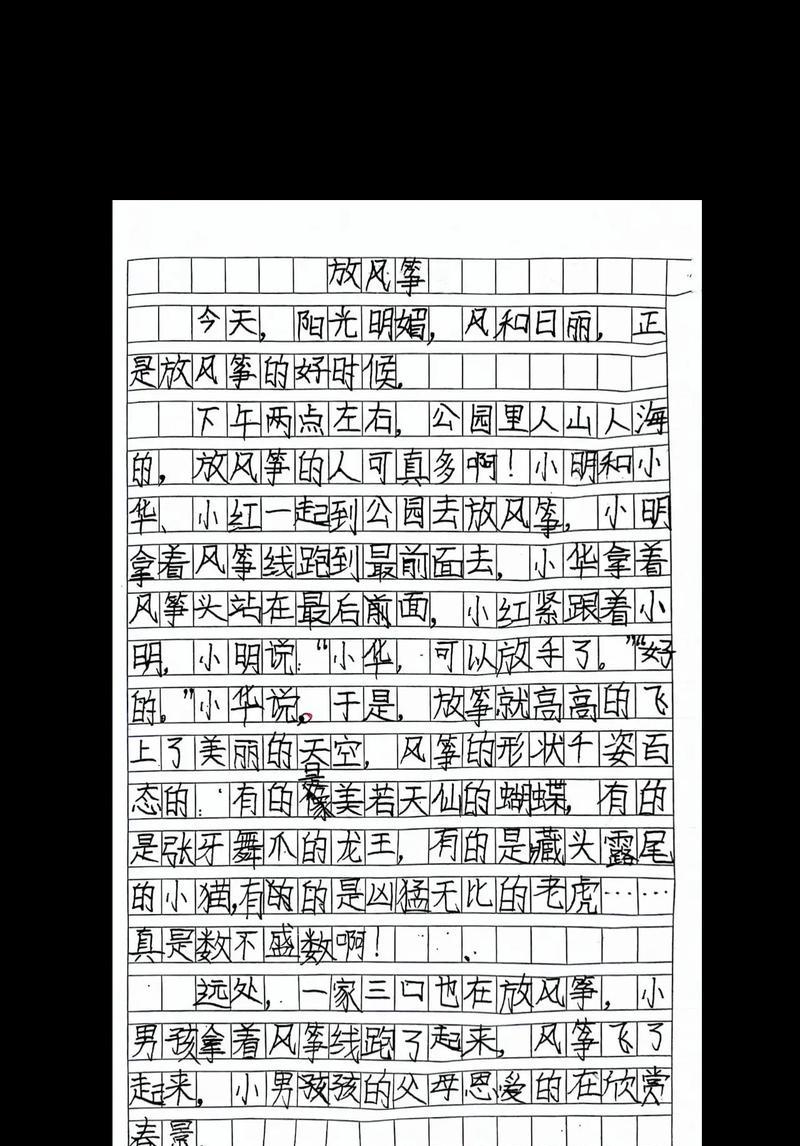 放风筝
今天，阳光明媚，风和日丽，正
是放风筝的好时候。
下午两点左右，公园里人山人海
的，放风筝的人可真多啊！小明和小
华、小红一起到公园去放风筝，小明
拿着风筝线跑到最前面去，小华拿着
风筝头站在最后前面，小红紧跟着小
明，小明说：“小华，可以放手了。”“好
的。”小华说。于是，放筝就高高的飞
上了美丽的天空，风筝的形状千姿百
态的：有的是美若天仙的蝴蝶，有的
是张牙舞爪的龙王，有的是藏头露尾
的小猫，有的的是凶猛无比的老虎……
真是数不盛数啊！
远处，一家三口也在放风筝，小
男孩拿着风筝线跑了起来，风筝飞了
起来，小男孩孩的父母恩爱的在欣赏
春景